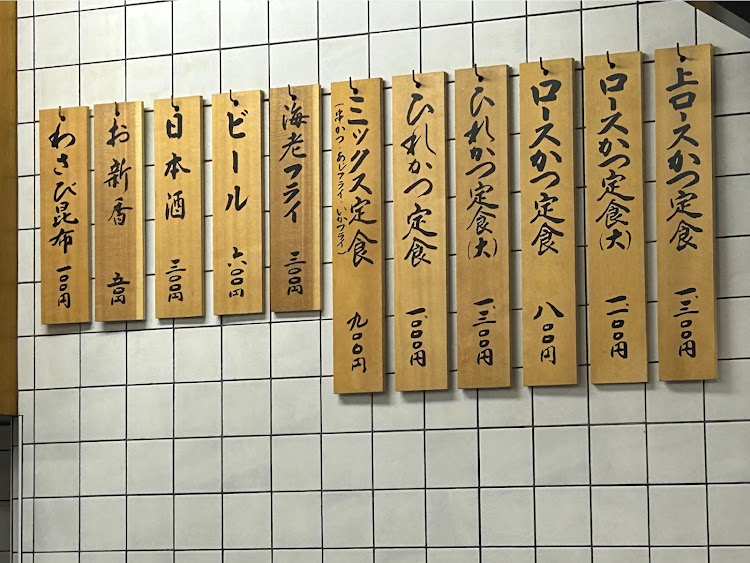 上ロースかつ定食 一、三〇〇円
ロースかつ定食(大) 一、二〇〇円
ロースかつ定食 八〇〇円
ひれかつ定食(大) 一、三〇〇円
ひれかつ定食 一、〇〇〇円
ミックス定食 九〇〇円
(串かつ あじフライ いかフライ)
海老フライ 三〇〇円
ビール 六〇〇円
日本酒 三〇〇円
お新香 五〇円
わさび昆布 一〇〇円